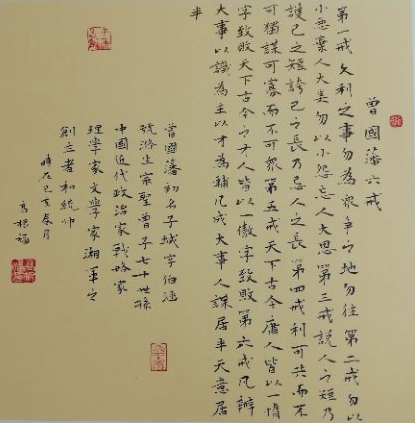 曾國藩六戒
第一戒久利之事勿為衆争之地勿往第二戒勿以
小惡棄人大美勿以小怨忘人大恩第三戒説人之短乃
護己之短誇己之長乃忌人之長第四戒利可共而不
可獨謀可寡而不可衆第五戒天下古今庸人皆以一惰
字致敗天下古今之才人皆以一傲字致敗第六戒凡辦
大事以識為主以才為輔凡成大事人謀居半天意居
半
曾國藩初名子城字伯涵
號滌生宗聖曾子七十世孫
中國近代政治家戰略家
理學家文學家湘軍之
創立者和統帥
時在己亥春月